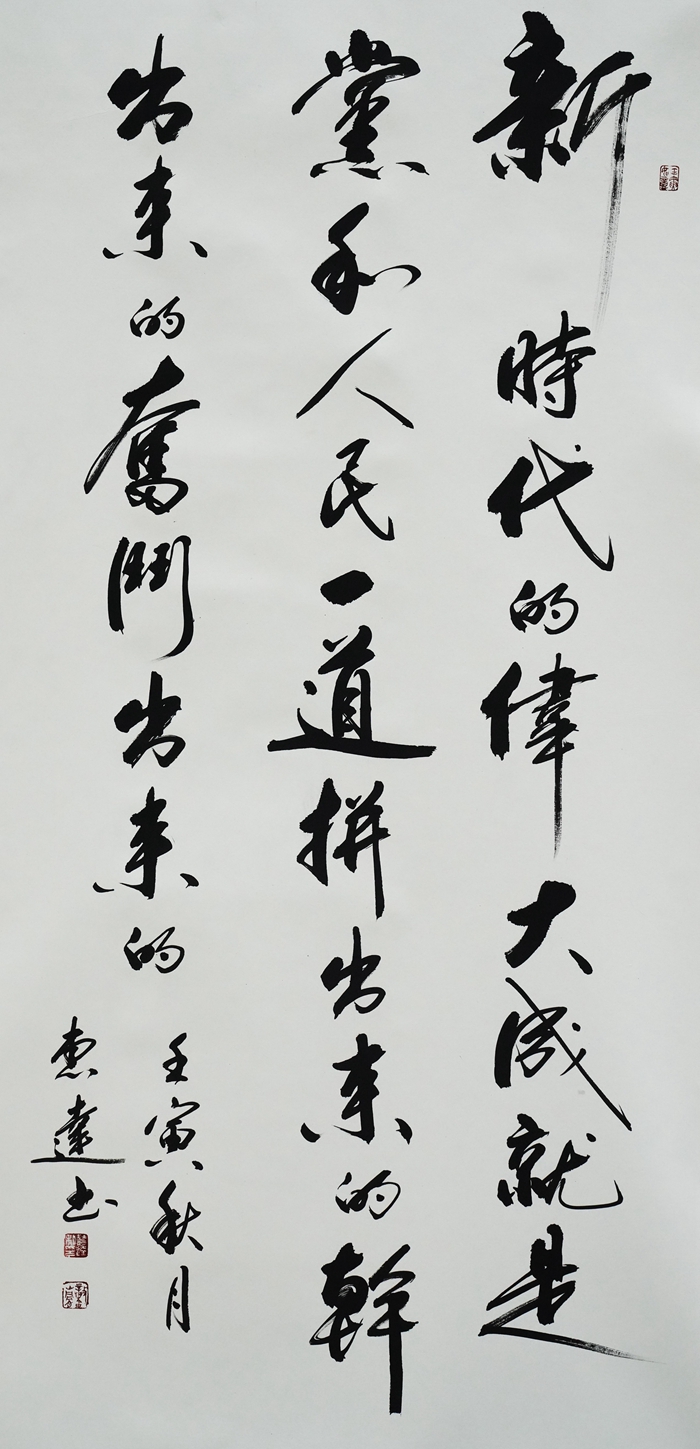 新時代的偉大成就是
黨和人民一道拼出来的幹
出来的奮鬥出来的
壬寅秋月
惠達书